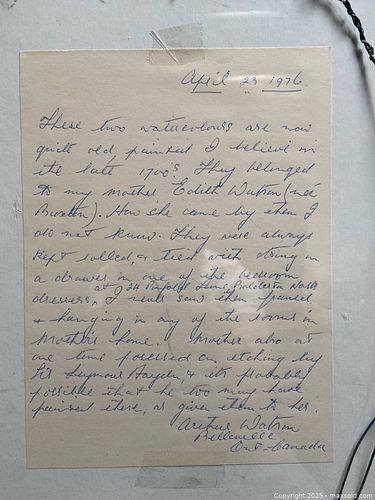 April 23 1976
These two watercolours are now
quite old, painted I believe in
the late 1700's. They belonged
to my mother Edith Watson (neé
). How she came by them I
do not know. They were always
kept rolled, & tied with string in
a drawer in one of the bedroom
dressers, at 24 Lane, Balderton Notts
I never saw them framed,
& hanging in any of the rooms in
Mothers home. Mother also at
one time possessed an etching by
Sir Seymour Hayden, & its probably
possible that he too may have
painted these, or given them to her.
Arthur Watson
Belleville
Ont. Canada
Copyright 2025 - maxsold.com